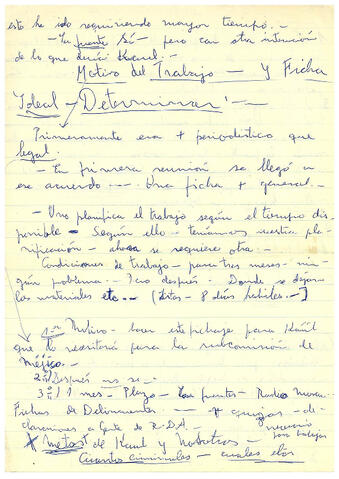 esto he ido requiriendo mayor tiempo. -
- Tu fuente Sí - pero con otra intención
de lo que
Motivo del Trabajo - Y Ficha
Ideal - Determinar -
Primeramente era + periodístico que
legal.
- En primera reunión se llegó a
ese acuerdo - Una ficha + general -
- Uno planifica el trabajo según el tiempo dis
ponible - Según ello - teníamos nuestra pla-
nificación - ahora se requiere otra -
Condiciones de trabajo - para tres meses - nin-
gún problema - después - Donde se dejan
los materiales etc - (Estos - 8 días hábiles -)
1er Motivo - hacer este para
que lo necesitará para la subcomisión de
Méjico. -
2º/ Después no se -
3º/ 1 mes - Plazo - Las fuentes - Radio
Fichas de - + quizás - de-
claraciones a Gente de R.DA. - necesario
* Metas de Kaul y Nosotros - son trabajos
Cuántos criminales - cuales ellos